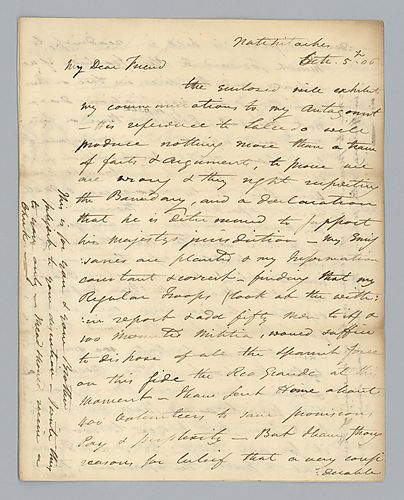 Natchitoches
Octr. 5th. 06
My Dear Friend
the enclosed will exhibit
my communications to my Antagonist
— His reference to Salcedo will
produce nothing more than a train
of facts & Arguments, to prove we
are wrong & they right respecting
the Boundary, and a declaration
that he is determined to support
his majestys jurisdiction — my Emis
saries are planted & my Information
constant & correct — finding that my
Regular Troops (look at the with:
:in report & add fifty Men to it) &
100 Mounted Militia, would suffice
to dispose of all the Spanish force
on this side the Rio Grande at this
Moment — I have sent Home about
400 Volunteers to save provisions
Pay & perplexity — But I have strong
reasons for belief that a very consi
:derable
This is for your & your Brother
subject to your discretion — write this
to you only — Mead must receive a